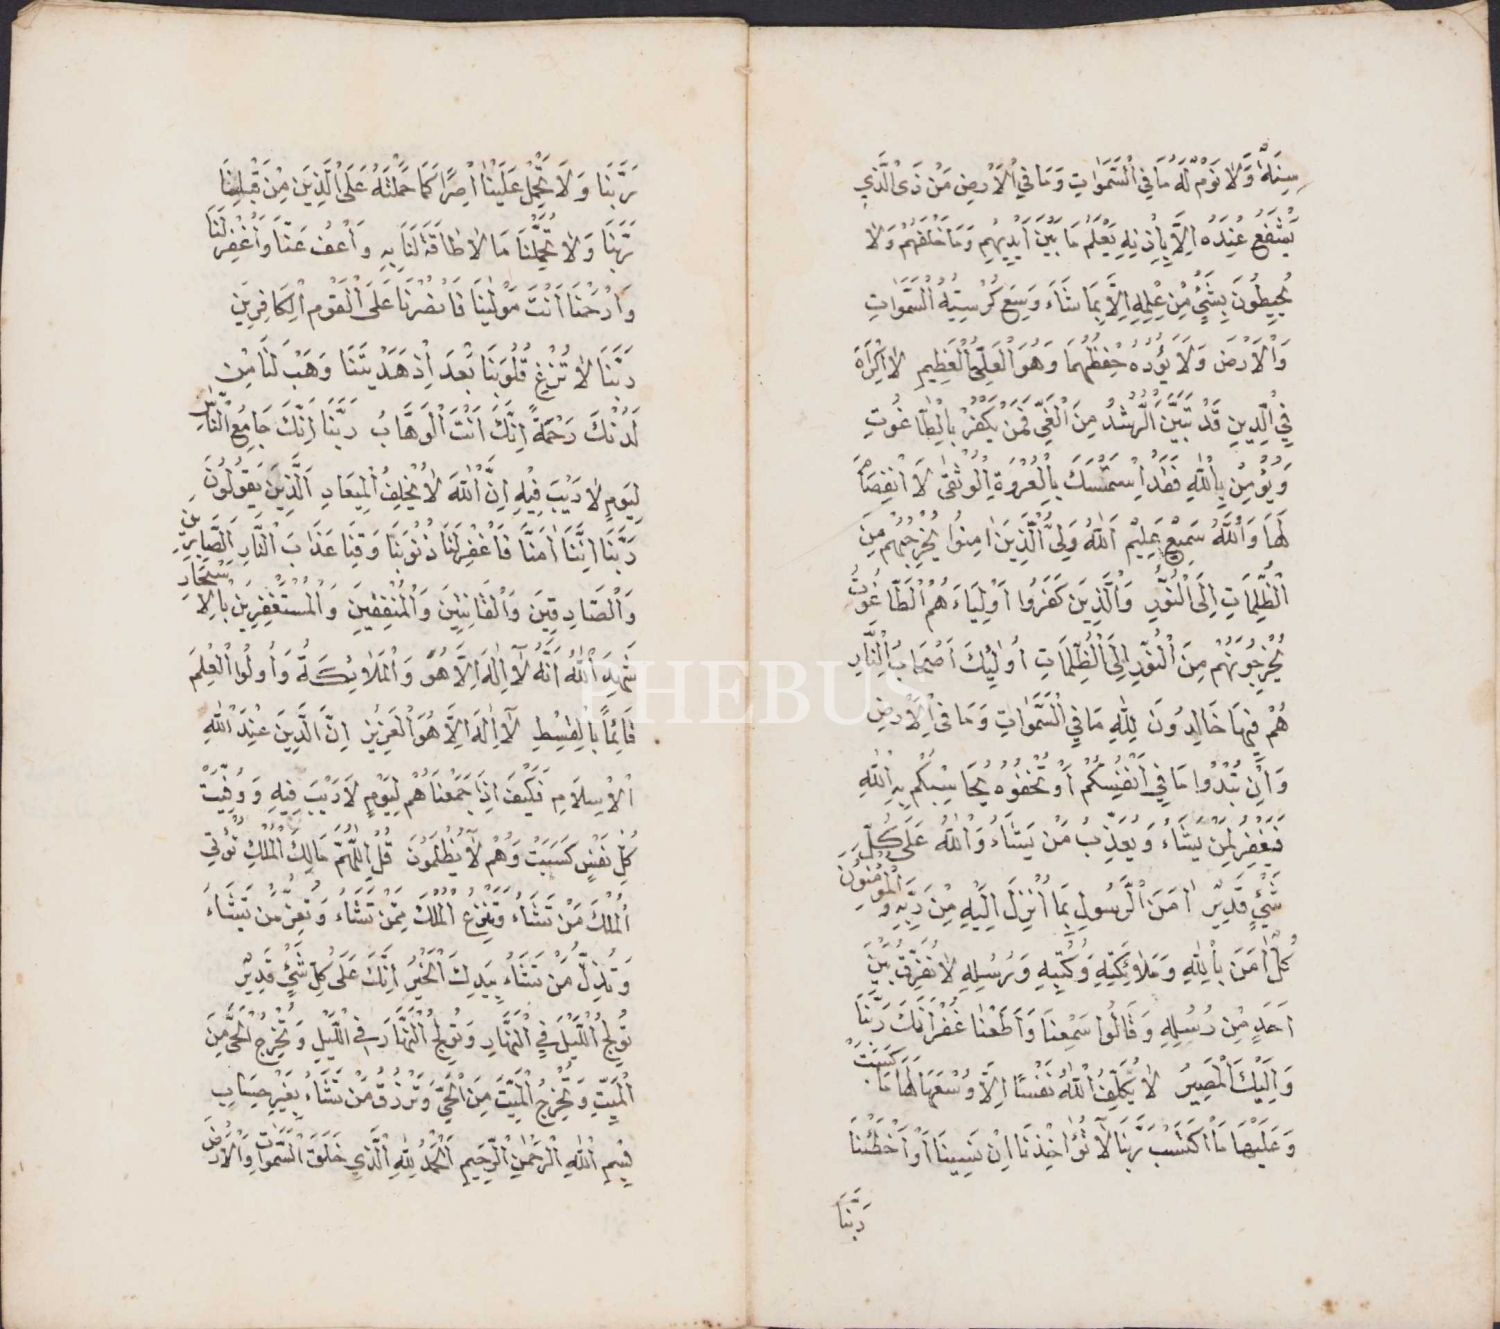 سِنَةٌ وَلَا نَوْمٌ لَهُ مَا فِي السَّمَوَاتِ وَمَا فِي الْاَرْضِ مَنْ ذَى الَّذِي
يَشْفَعُ عِنْدَهُ اِلَّا بِاِذْنِهِ يَعْلَمُ مَا بَيْنَ اَيْدِيهِمِ وَمَا خَلْفَهُمْ وَلَا
يُحِيطُونَ بِشَيْءٍ مِنْ عِلْمِهِ اِلَّا بِمَا شَاءَ وَسِعَ كُرْسِيُّهُ السَّمَوَاتِ
وَالْاَرْضَ وَلَا يَؤُدُهُ حِفْظُهُمَا وَهُوَ الْعَلِيُّ الْعَظِيمِ لَا اِكْرَاهَ
فِي الدِّينِ قَدْ تَبَيَّنَ الرُّشْدُ مِنَ الْغَيِّ فَمَنْ يَكْفُرْ بِالطَّاغُوتِ
وَيُؤْمِنْ بِاللهِ فَقَدْ اِسْتَمْسَكَ بِالْعُرْوَةِ الْوُثْقَى لَا انْفِصَامَ
لَهَا وَاللهُ سَمِيعٌ عَلِيمٌ اَللهُ وَلِيُّ الَّذِينَ اٰمَنُوا يُخْرِجُهُمْ مِنَ
الْظُّلُمَاتِ اِلَى النُّورِ وَالَّذِينَ كَفَرُوا اَوْلِيَاءَهُمُ الطَّاغُوتُ
يُخْرِجُونَهُمْ مِنَ النُّورِ اِلَى الظُّلُمَاتِ اُولٰئِكَ اَصْحَابُ النَّارِ
هُمْ فِيهَا خَالِدُونَ لِلّٰهِ مَا فِي السَّمٰوَاتِ وَمَا فِي الْاَرْضِ
وَاِنْ تُبْدُوا مَا فِي اَنْفُسِكُمْ اَوْ تُخْفُوهُ يُحَاسِبْكُمْ بِهِ اللهِ
فَيَغْفِرُ لِمَنْ يَشَاءُ وَيُعَذِّبُ مَنْ يَشَاءُ وَاللهُ عَلَى كُلِّ
شَيْءٍ قَدِيرٌ اٰمَنَ الرَّسُولُ بِمَا اُنْزِلَ اِلَيْهِ مِنْ رَبِّهِ وَالْمُؤْمِنُونَ
كُلٌّ اٰمَنَ بِاللهِ وَمَلَائِكَتِهِ وَكُتُبِهِ وَرُسُلِهِ لَا نُفَرِّقُ بَيْنَ
اَحَدٍ مِنْ رُسُلِهِ وَقَالُوا سَمِعْنَا وَاَطَعْنَا غُفْرَانَكَ رَبَّنَا
وَاِلَيْكَ الْمَصِيرُ لَا يُكَلِّفُ اللهُ نَفْسًا اِلَّا وُسْعَهَا لَهَا مَا كَسَبَتْ
وَعَلَيْهَا مَا اكْتَسَبَتْ رَبَّنَا لَا تُؤَاخِذْنَا اِنْ نَسِينَا اَوْ اَخْطَئْنَا
رَبَّنَا
رَبَّنَا وَلَا تَحْمِلْ عَلَيْنَا اِصْرًا كَمَا حَمَلْتَهُ عَلَى الَّذِينَ مِنْ قَبْلِنَا
رَبَّنَا وَلَا تُحَمِّلْنَا مَا لَا طَاقَةَ لَنَا بِهِ وَاعْفُ عَنَّا وَاغْفِرْ لَنَا
وَارْحَمْنَا اَنْتَ مَوْلٰينَا فَانْصُرْنَا عَلَى الْقَوْمِ الْكَافِرِينَ
رَبَّنَا لَا تُزِغْ قُلُوبَنَا بَعْدَ اِذْ هَدَيْتَنَا وَهَبْ لَنَا مِنْ
لَدُنْكَ رَحْمَةً اِنَّكَ اَنْتَ الْوَهَّابُ رَبَّنَا اِنَّكَ جَامِعُ النَّاسِ
لِيَوْمٍ لَا رَيْبَ فِيهِ اِنَّ اللهَ لَا يُخْلِفُ الْمِيعَادِ اَلَّذِينَ يَقُولُونَ
رَبَّنَا اِنَّنَا اٰمَنَّا فَاغْفِرْ لَنَا ذُنُوبَنَا وَقِنَا عَذَابَ النَّارِ اَلصَّابِرِينَ
وَالصَّادِقِينَ وَالْقَانِتِينَ وَالْمُنْفِقِينَ وَالْمُسْتَغْفِرِينَ بِالْاَسْحَارِ
شَهِدَ اللهُ اَنَّهُ لَا اِلٰهَ اِلَّا هُوَ وَالْمَلَائِكَةُ وَاُولُوا الْعِلْمِ
قَائِمًا بِالْقِسْطِ لَا اِلٰهَ اِلَّا هُوَ الْعَزِيزُ اِنَّ الدِّينَ عِنْدَ اللهِ
الْاِسْلَامِ فَكَيْفَ اِذَا جَمَعْنَاهُمْ لِيَوْمٍ لَا رَيْبَ فِيهِ وَوُفِّيَتْ
كُلُّ نَفْسٍ كَسَبَتْ وَهُمْ لَا يُظْلَمُونَ قُلِ اللّٰهُمَّ مَالِكَ الْمُلْكِ تُؤْتِي
الْمُلْكَ مَنْ تَشَاءُ وَتَنْزِعُ الْمُلْكَ مِمَّنْ تَشَاءُ وَتُعِزُّ مَنْ تَشَاءُ
وَتُذِلُّ مَنْ تَشَاءُ بِيَدِكَ الْخَيْرُ اِنَّكَ عَلَى كُلِّ شَيْءٍ قَدِيرٌ
تُولِجُ اللَّيْلَ فِي النَّهَارِ وَتُولِجُ النَّهَارَ فِي اللَّيْلِ وَتُخْرِجُ الْحَيَّ مِنَ
الْمَيِّتِ وَتُخْرِجُ الْمَيِّتَ مِنَ الْحَيِّ وَتَرْزُقُ مَنْ تَشَاءُ بِغَيْرِ حِسَابِ
بِسْمِ اللهِ الرَّحْمٰنِ الرَّحِيمِ اَلْحَمْدُ لِلّٰهِ الَّذِي خَلَقَ السَّمٰوَاتِ وَالْاَرْضَ
PHEBUS